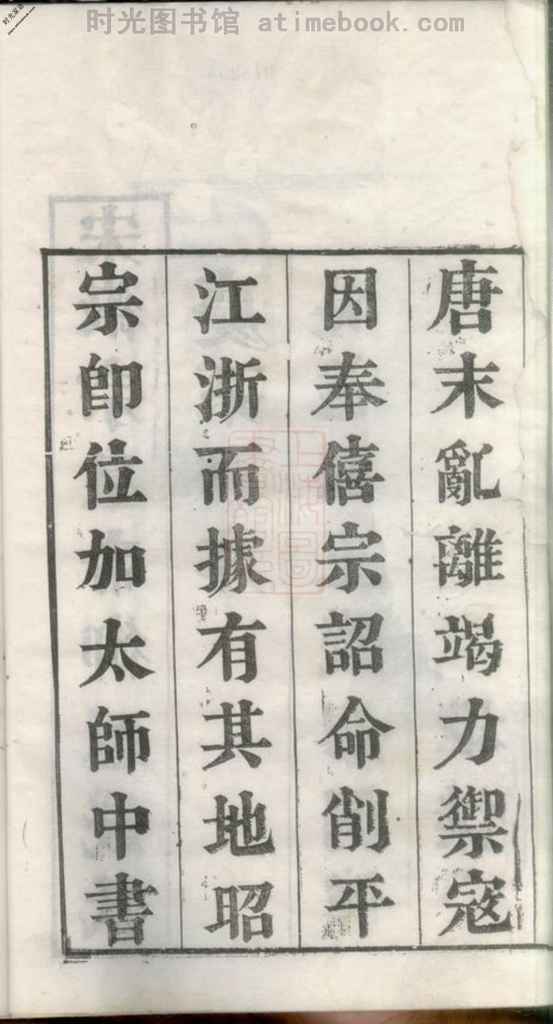 时光图书馆 atimebook.com
唐末亂離竭力禦寇
因奉僖宗詔命削平
江浙而據有其地昭
宗即位加太師中書